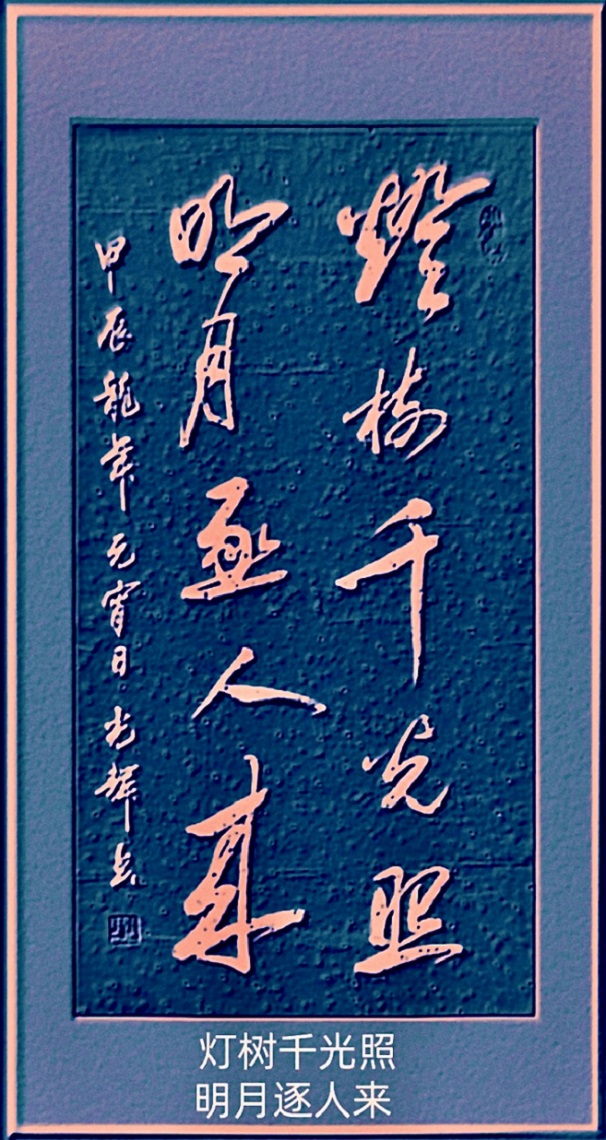 燈樹千光照
明月逐人来
甲辰龍年元宵日光輝书
灯树千光照
明月逐人来